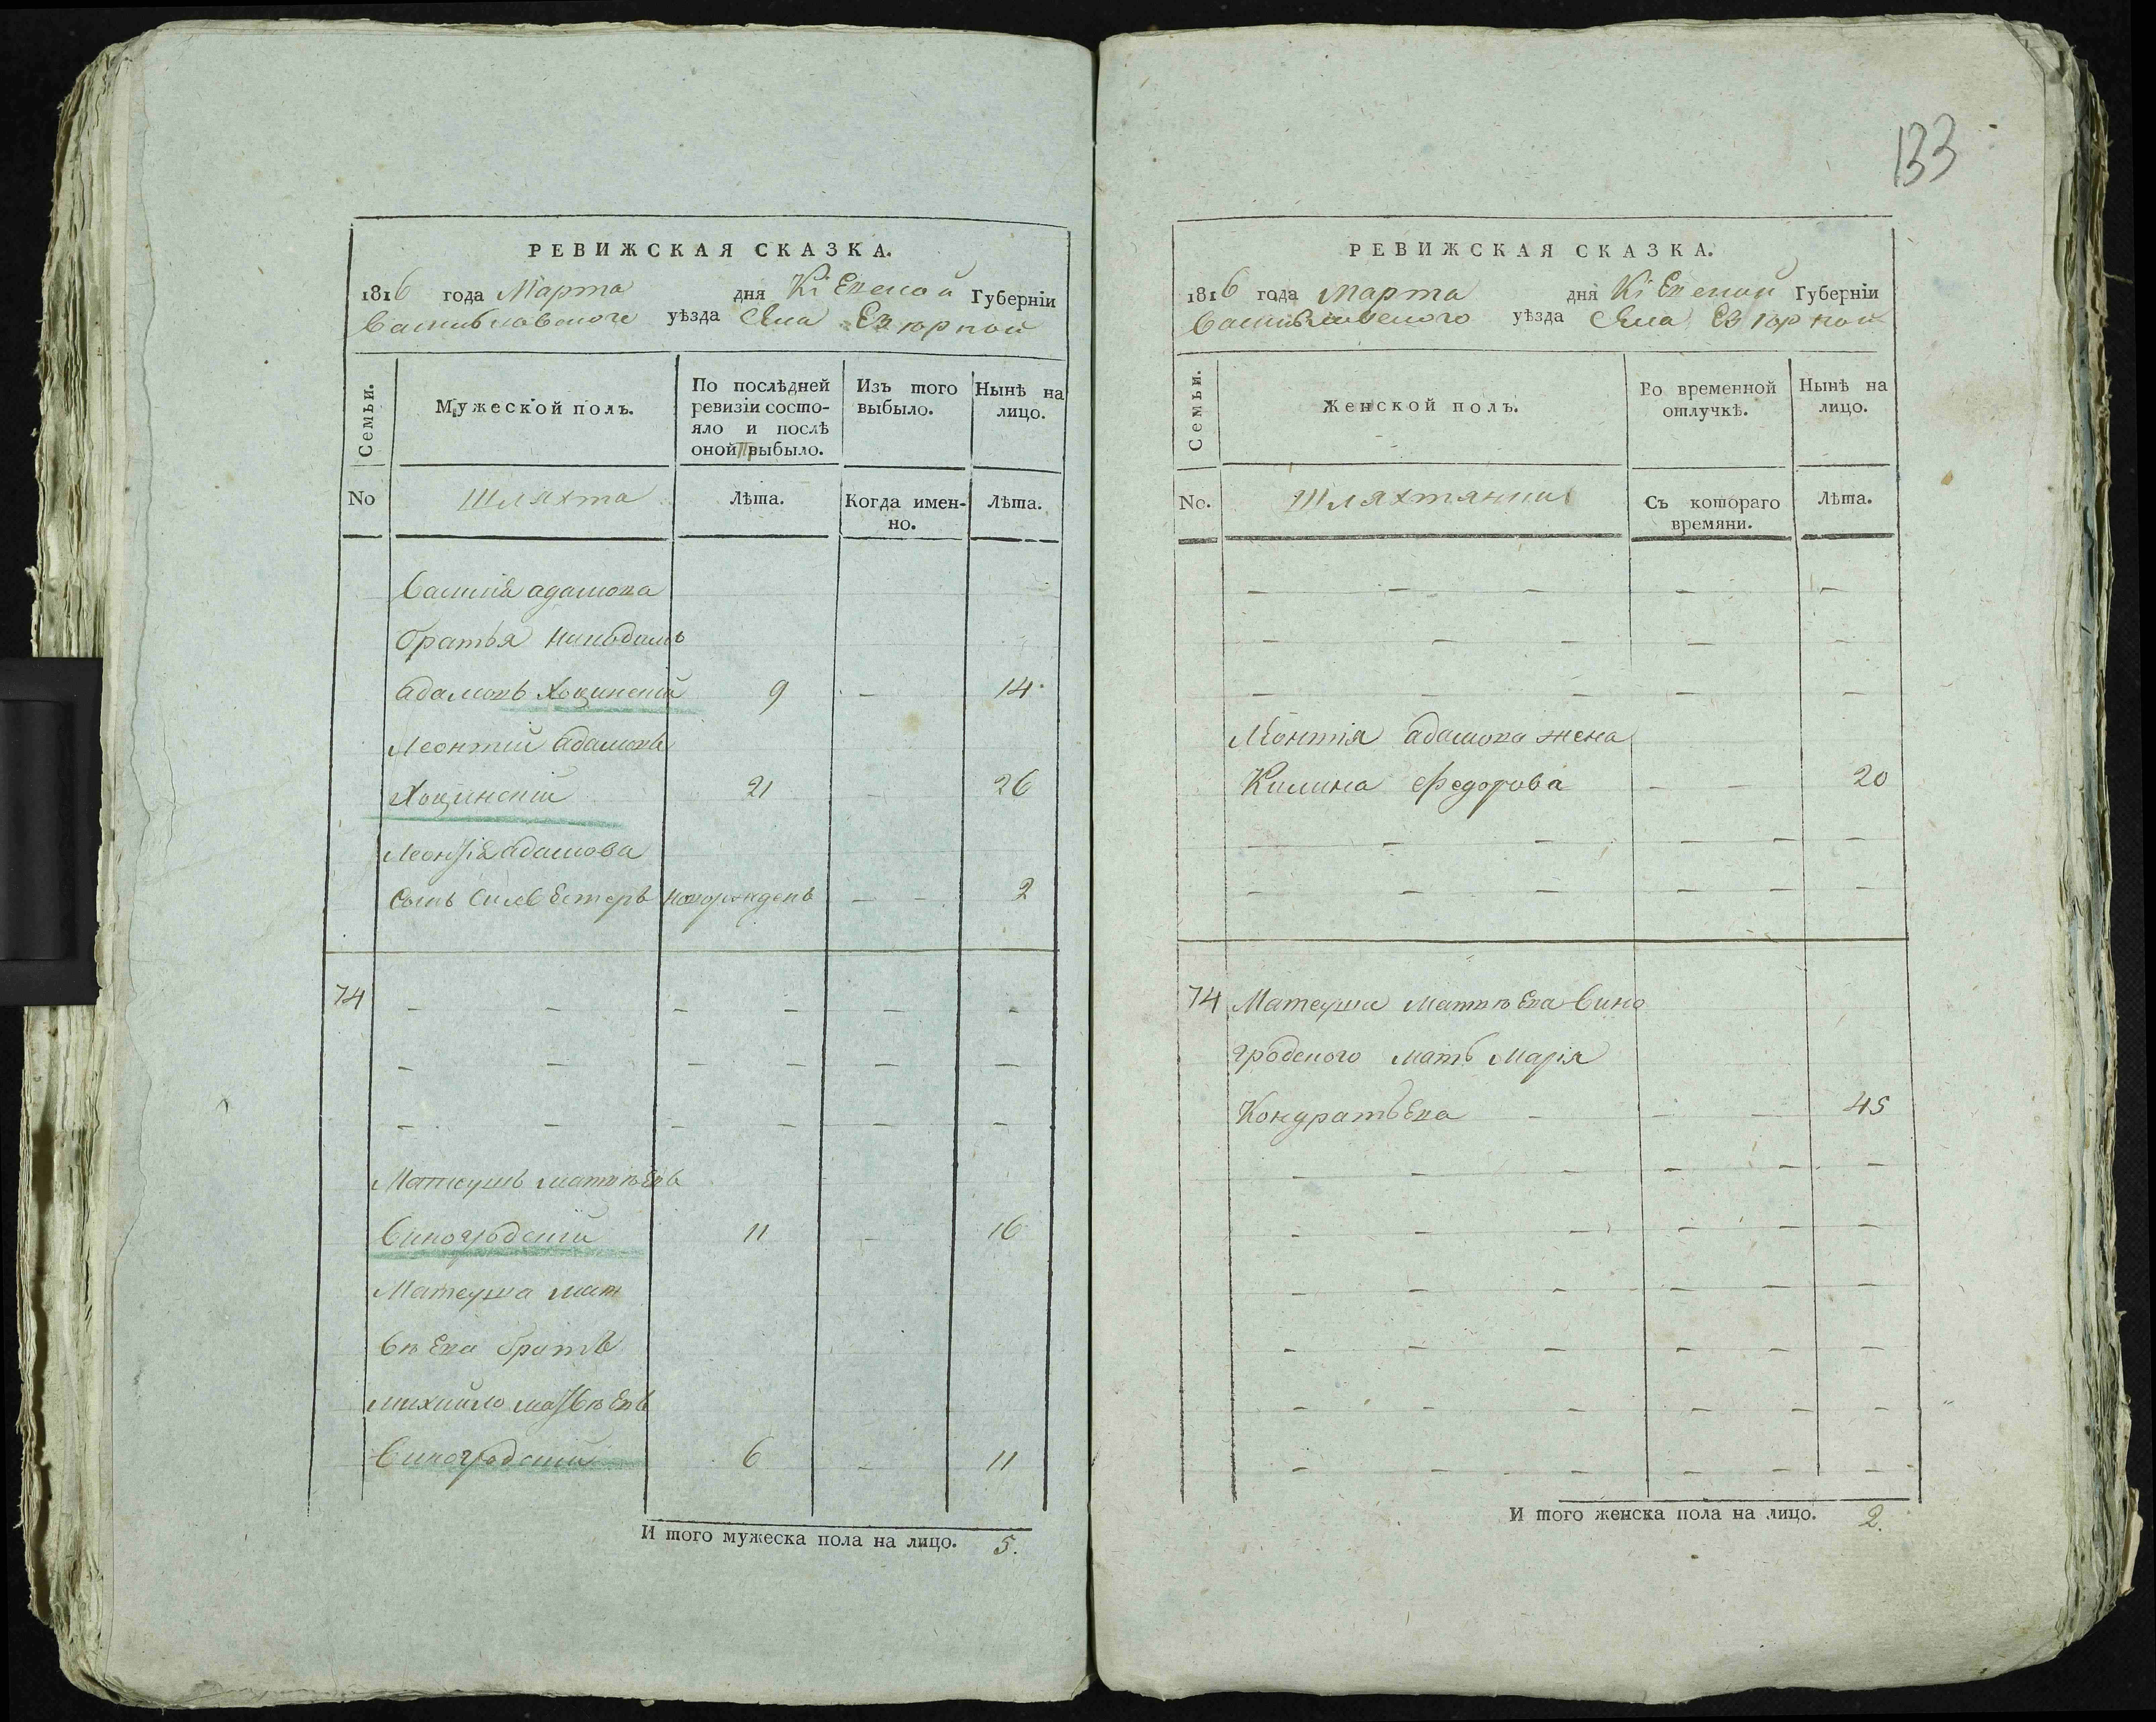 РЕВИЖСКАЯ СКАЗКА.
1816 года Марта дня Кіевской Губерніи
Васильковского уѣзда Села Езюрной
Семьи.
Мужеской полъ.
По послѣдней
ревизіи состо-
яло и послѣ
оной выбыло.
Изъ того
выбыло.
Нынѣ на
лицо.
No
Шляхта
Лѣта.
Когда имен-
но.
Лѣта.
Василія адамова
братья
адамовъ 9 — 14
Леонтій адамовъ
21 — 26
Леонтія адамова
сынъ Силвестеръ новорожденъ — — 2
74 — — — — — —
— — — — — —
— — — — — —
Матеушъ матвѣевъ
Виногродскій 11 — 16
Матеуша мат
вѣева братъ
михайло матвѣевъ
Виногродскій 6 — 11
И того мужеска пола на лицо. 5.
133
РЕВИЖСКАЯ СКАЗКА.
1816 года марта дня Кіевской Губерніи
Васильковского уѣзда Села Езюрной
Семьи.
Женской полъ.
Во временной
отлучкѣ.
Нынѣ на
лицо.
No.
Шляхтянки
Съ котораго
времяни.
Лѣта.
— — — — —
— — — — —
— — — — —
Леонтія адамова жена
Килина Федорова — — 20
— — — — — —
— — — — — —
74 Матеуша матвѣева Вино
гродского мать Марія
Кондратьева — — — 45
— — — — — —
— — — — — —
— — — — — —
— — — — — —
— — — — — —
— — — — — —
И того женска пола на лицо. 2.